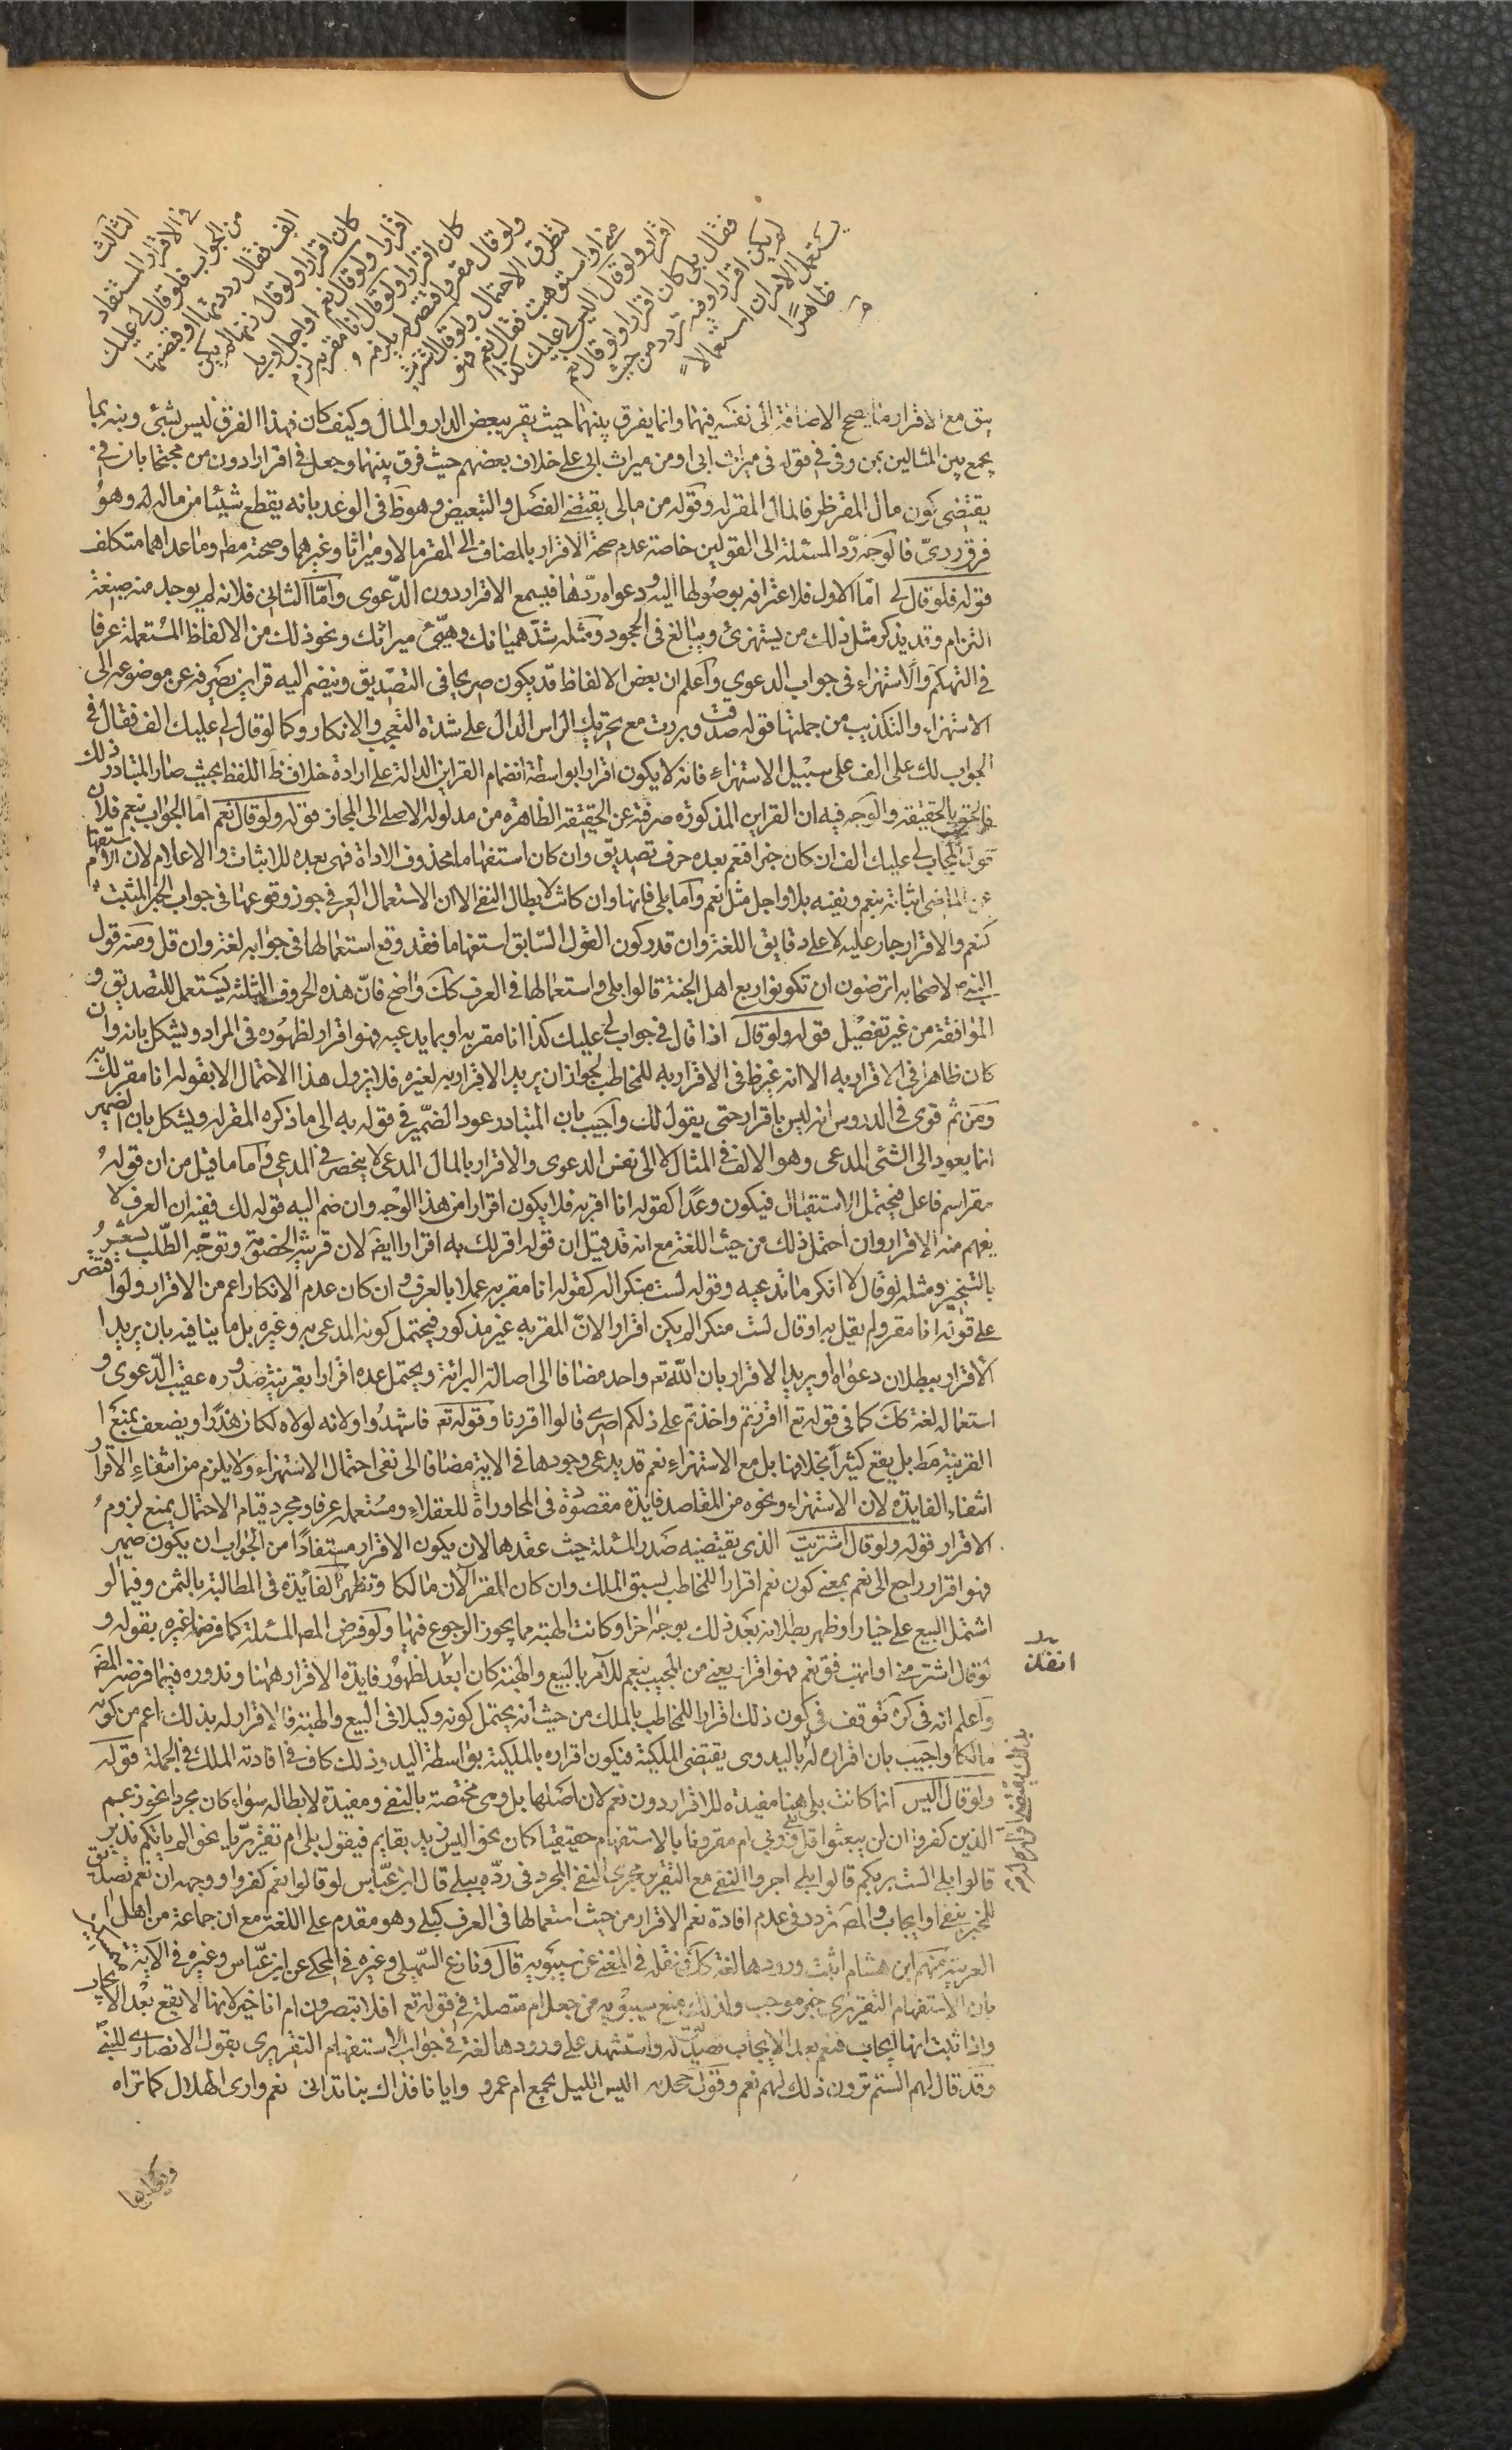 الثالث
في الاقرار المستفاد
من الجواب فلو قال لي عليك
الف فقال رددتها او قبضتها
كان اقرارا ولو قال زنها لم يكن
اقرارا ولو قال نعم او اجل او بلى
كان اقرارا ولو قال انا مقر به لزم
ولو قال مقر واقتصر لم يلزمه و
لتطرق الاحتمال ولو قال اشتريت
مني او استوهبت فقال نعم فهو
اقرار ولو قال اليس لي عليك كذا
فقال بلى كان اقرارا ولو قال نعم
لم يكن اقرارا وفيه تردد من حيث
يستعمل الامران استعمالا
ظاهرا
يق مع الاقرار ما يصح الاضافة الى نفسه فيهما وانما يفرق بينهما حيث يقر ببعض الدار والمال وكيف كان فهذا الفرق ليس بشئ ونبه بما
يجمع بين المثالين بمن وفي في قوله في ميراث ابي او من ميراث ابي على خلاف بعضهم حيث فرق بينهما وجعل في اقرارا دون من محتجا بان في
يقتضى كون مال المقر ظرفا لمال المقر له وقوله من مالي يقتضي الفصل والتبعيض وهو ظ في الوعد بانه يقطع شيئا من ماله له وهو
فرق ردئ فالوجه رد المسئلة الى القولين خاصة عدم صحة الاقرار بالمضاف الى المقر مالا وميراثا وغيرهما وصحته مط وما عداهما متكلف
قوله فلو قال لي اما الاول فلاعترافه بوصولها اليه ودعواه ردها فيسمع الاقرار دون الدعوى واما الثاني فلانه لم يوجد منه صيغة
التزام وقد يذكر مثل ذلك من يستهزئ ويبالغ في الجحود ومثله شد هميانك وهيئ ميزانك ونحو ذلك من الالفاظ المستعملة عرفا
في التهكم والاستهزاء في جواب الدعوي واعلم ان بعض الالفاظ قد يكون صريحا في التصديق وينضم اليه قراين تصرفه عن موضوعه الى
الاستهزاء والتكذيب من جملتها قوله صدقت وبررت مع تحريك الراس الدال على شدة التعجب والانكار وكما لو قال لي عليك الف فقال في
الجواب لك على الف على سبيل الاستهزاء فانه لا يكون اقرارا بواسطة انضمام القراين الدالة على ارادة خلاف ظ اللفظ بحيث صار المتبادر ذلك
فالحق بالحقيقة والوجه فيه ان القراين المذكورة صرفته عن الحقيقة الظاهرة من مدلوله الاصلي الى المجاز قوله ولو قال نعم اما الجواب بنعم فلان
قول المجاب لي عليك الف ان كان خبرا فنعم بعده حرف تصديق وان كان استفهاما محذوف الاداة فهي بعده للاثبات والاعلام لان الاستفهام
عن الماضي اثباته بنعم ونفيه بلا واجل مثل نعم واما بلى فانها وان كانت لابطال النفي الا ان الاستعمال العرفي جوز وقوعها في جواب الخبر المثبت
كنعم والاقرار جار عليه لا على دقايق اللغة وان قدر كون القول السابق استفهاما فقد وقع استعمالها في جوابه لغة وان قل ومنه قول
النبي ص لاصحابه اترضون ان تكونوا ربع اهل الجنة قالوا بلى واستعمالها في العرف كك واضح فان هذه الحروف الثلثة يستعمل للتصديق و
الموافقة من غير تفصيل قوله ولو قال اذا قال في جواب لي عليك كذا انا مقر به او بما يدعيه فهو اقرار لظهوره في المراد ويشكل بانه وان
كان ظاهرا في الاقرار به الا انه غير ظ في الاقرار به للمخاطب لجواز ان يريد الاقرار به لغيره فلا يزول هذا الاحتمال الا بقوله انا مقر لك به
ومن ثم قوى في الدروس انه ليس باقرار حتى يقول لك واجيب بان المتبادر عود الضمير في قوله به الى ما ذكره المقر له ويشكل بان الضمير
انما يعود الى الشئ المدعى وهو الالف في المثال لا الى نفس الدعوى والاقرار بالمال المدعى لا ينحصر في المدعي واما ما قيل من ان قوله
مقر اسم فاعل فيحتمل الاستقبال فيكون وعدا كقوله انا اقر به فلا يكون اقرارا من هذا الوجه وان ضم اليه قوله لك ففيه ان العرف لا
يفهم منه الا الاقرار وان احتمل ذلك من حيث اللغة مع انه قد قيل ان قوله اقر لك به اقرار ايضا لان قرينة الخصومة وتوجه الطلب يشعر
بالتنجيز ومثله لو قال لا انكر ما تدعيه وقوله لست منكرا له كقوله انا مقر به عملا بالعرف وان كان عدم الانكار اعم من الاقرار ولو اقتصر
على قوله انا مقر ولم يقل به او قال لست منكرا لم يكن اقرارا لان المقر به غير مذكور فيحتمل كونه المدعى به وغيره بل ما ينافيه بان يريد ا
الاقرار ببطلان دعواه او يريد الاقرار بان الله تع واحد مضافا الى اصالة البرائة ويحتمل عده اقرارا بقرينة صدوره عقيب الدعوى و
استعماله لغة كك كما في قوله تع ااقررتم واخذتم على ذلكم اصري قالوا اقررنا وقوله تع فاشهدوا ولانه لولاه لكان هذرا ويضعف بمنع ا
القرينة مط بل يقع كثيرا بخلافها بل مع الاستهزاء نعم قد يدعى وجودها في الاية مضافا الى نفى احتمال الاستهزاء ولا يلزم من انتفاء الاقرار
انتفاء الفايدة لان الاستهزاء ونحوه من المقاصد فايدة مقصودة في المحاوراة للعقلاء ومستعمله عرفا ومجرد قيام الاحتمال يمنع لزوم
الاقرار قوله ولو قال اشتريت الذى يقتضيه صدر المسئلة حيث عقدها لان يكون الاقرار مستفادا من الجواب ان يكون ضمير
فهو اقرار راجع الى نعم بمعنى كون نعم اقرارا للمخاطب بسبق الملك وان كان المقر الان مالكا وتظهر الفايدة في المطالبة بالثمن وفيما لو
اشتمل البيع على خيار او ظهر بطلانه بعد ذلك بوجه اخر او كانت الهبة مما يجوز الرجوع فيها ولو فرض المص المسئلة كما فرضها غيره بقوله و
لو قال اشتر مني او اتهب فق نعم فهو اقرار يعني من المجيب بنعم للآمر بالبيع والهبة كان ابعد لظهور فايدة الاقرار ههنا وندوره فيما فرضه المص
واعلم انه في كره توقف في كون ذلك اقرارا للمخاطب بالملك من حيث انه يحتمل كونه وكيلا في البيع والهبة فالاقرار له بذلك اعم من كونه
مالكا واجيب بان اقراره له باليد وهى يقتضى الملكية فيكون اقراره بالملكية بواسطة اليد وذلك كاف في افادته الملك في الجملة قوله
ولو قال اليس انما كانت بلى هنا مفيدة للاقرار دون نعم لان اصلها بل وهى مختصة بالنفي ومفيدة لابطاله سواء كان مجردا نحو زعم
الذين كفروا ان لن يبعثوا قل بلى وربي ام مقرونا بالاستفهام حقيقيا كان نحو اليس زيد بقايم فيقول بلى ام تقريريا نحو الم ياتكم نذير
قالوا بلى الست بربكم قالوا بلى اجروا النفي مع التقرير مجرى النفي المجرد في رده ببلى قال ابن عباس لو قالوا نعم كفروا ووجهه ان نعم تصديق
للمخبر بنفي او ايجاب والمص تردد في عدم افادة نعم الاقرار من حيث استعمالها في العرف كبلى وهو مقدم على اللغة مع ان جماعة من اهل ا
العربية منهم ابن هشام اثبت ورودها لغة كك ونقله في المغني عن سيبويه قال ونازع السهيلي وغيره في المحكي عن ابن عباس وغيره في الآية
بان الاستفهام التقريري خبر موجب ولذلك منع سيبويه من جعل ام متصلة في قوله تع افلا تبصرون ام انا خير لانها لا يقع بعد الايجاب
واذا ثبت انها ايجاب فنعم بعد الايجاب تصديق له واستشهد على ورودها لغة في جواب الاستفهام التقريري بقول الانصار للنبي
وقد قال لهم الستم ترون ذلك لهم نعم وقول جحدر اليس الليل يجمع ام عمرو وايانا فذاك بنا تداني نعم وارى الهلال كما تراه
ويعلوها